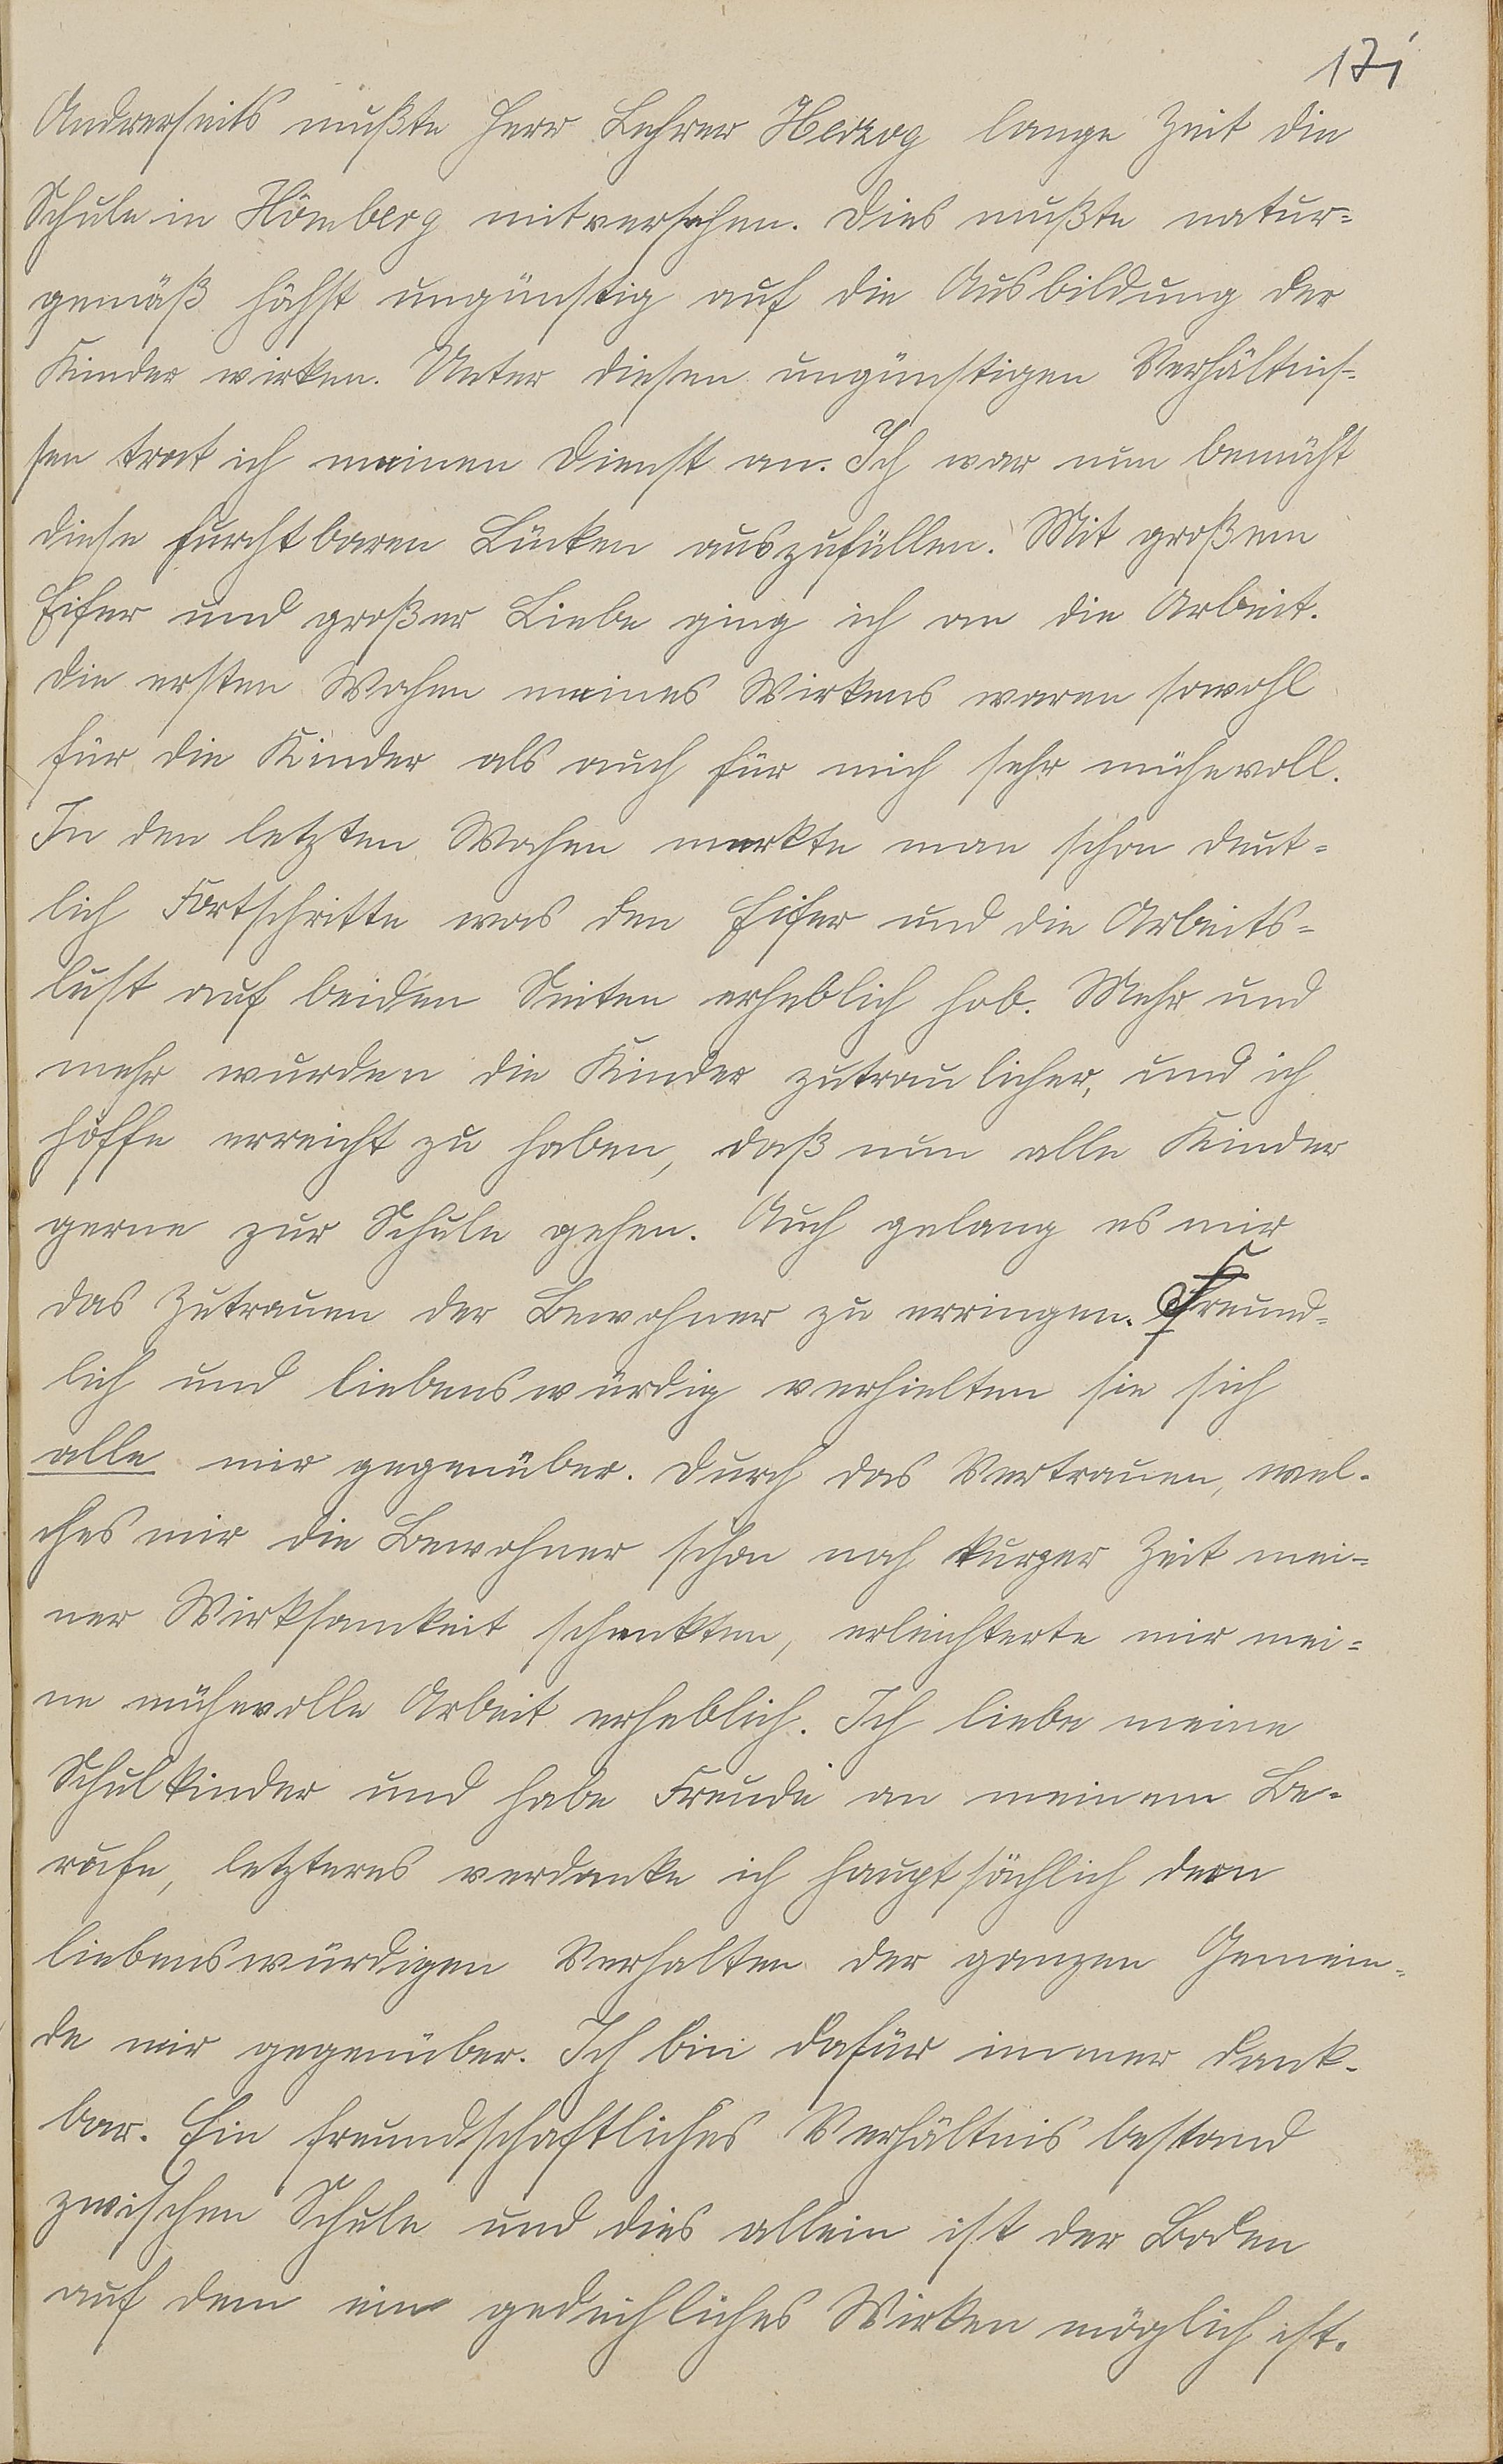 171
Andrerseits mußte Herr Lehrer Herzog lange Zeit die
Schule in Hömberg mitversehen. Dies mußte natur=
gemäß höchst ungünstig auf die Ausbildung der
Kinder wirken. Unter diesen ungünstigen Verhältnis=
sen trat ich meinen Dienst an. Ich war nun bemüht
diese furchtbaren Lücken auszufüllen. Mit großem
Eifer und großer Liebe ging ich an die Arbeit.
Die ersten Wochen meines Wirkens waren sowohl
für die Kinder als auch für mich sehr mühevoll.
In den letzten Wochen merkte man schon deut=
lich Fortschritte was den Eifer und die Arbeits=
lust auf beiden Seiten erheblich hob. Mehr und
mehr wurden die Kinder zutraulicher, und ich
hoffe erreicht zu haben, daß nun alle Kinder
gerne zur Schule gehen. Auch gelang es mir
das Zutrauen der Bewohner zu erringen. Freund=
lich und liebenswürdig verhielten sie sich
alle mir gegenüber. Durch das Vertrauen, wel-
ches mir die Bewohner schon nach kurzer Zeit mei=
ner Wirksamkeit schenkten, erleichterte mir mei=
ne mühevolle Arbeit erheblich. Ich liebe meine
Schulkinder und habe Freude an meinem Be=
rufe, letzteres verdanke ich hauptsächlich dem
liebenswürdigen Verhalten der ganzen Gemein=
de mir gegenüber. Ich bin dafür immer dank-
bar. Ein freundschaftliches Verhältnis bestand
zwischen Schule und dies allein ist der Boden
auf dem ein gedeihliches Wirken möglich ist.